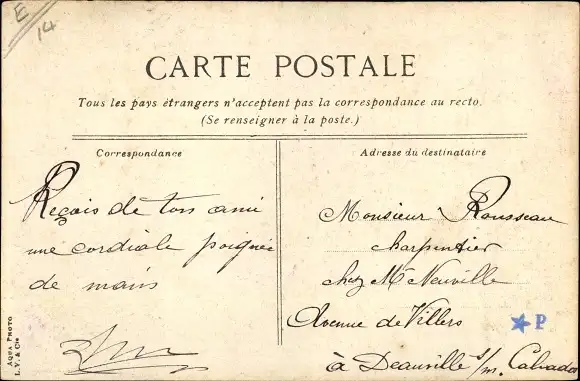 E
14
CARTE POSTALE
Tous les pays étrangers n'acceptent pas la correspondance au recto.
(Se renseigner à la poste.)
Correspondance
Reçois de ton ami
une cordiale poignée
de mains
Adresse du destinataire
Monsieur Rousseau
charpentier
chez Mr Neuville
Avenue de Villers
à Deauville s/m. Calvados
P
AQUA PHOTO
L. V. & Cie